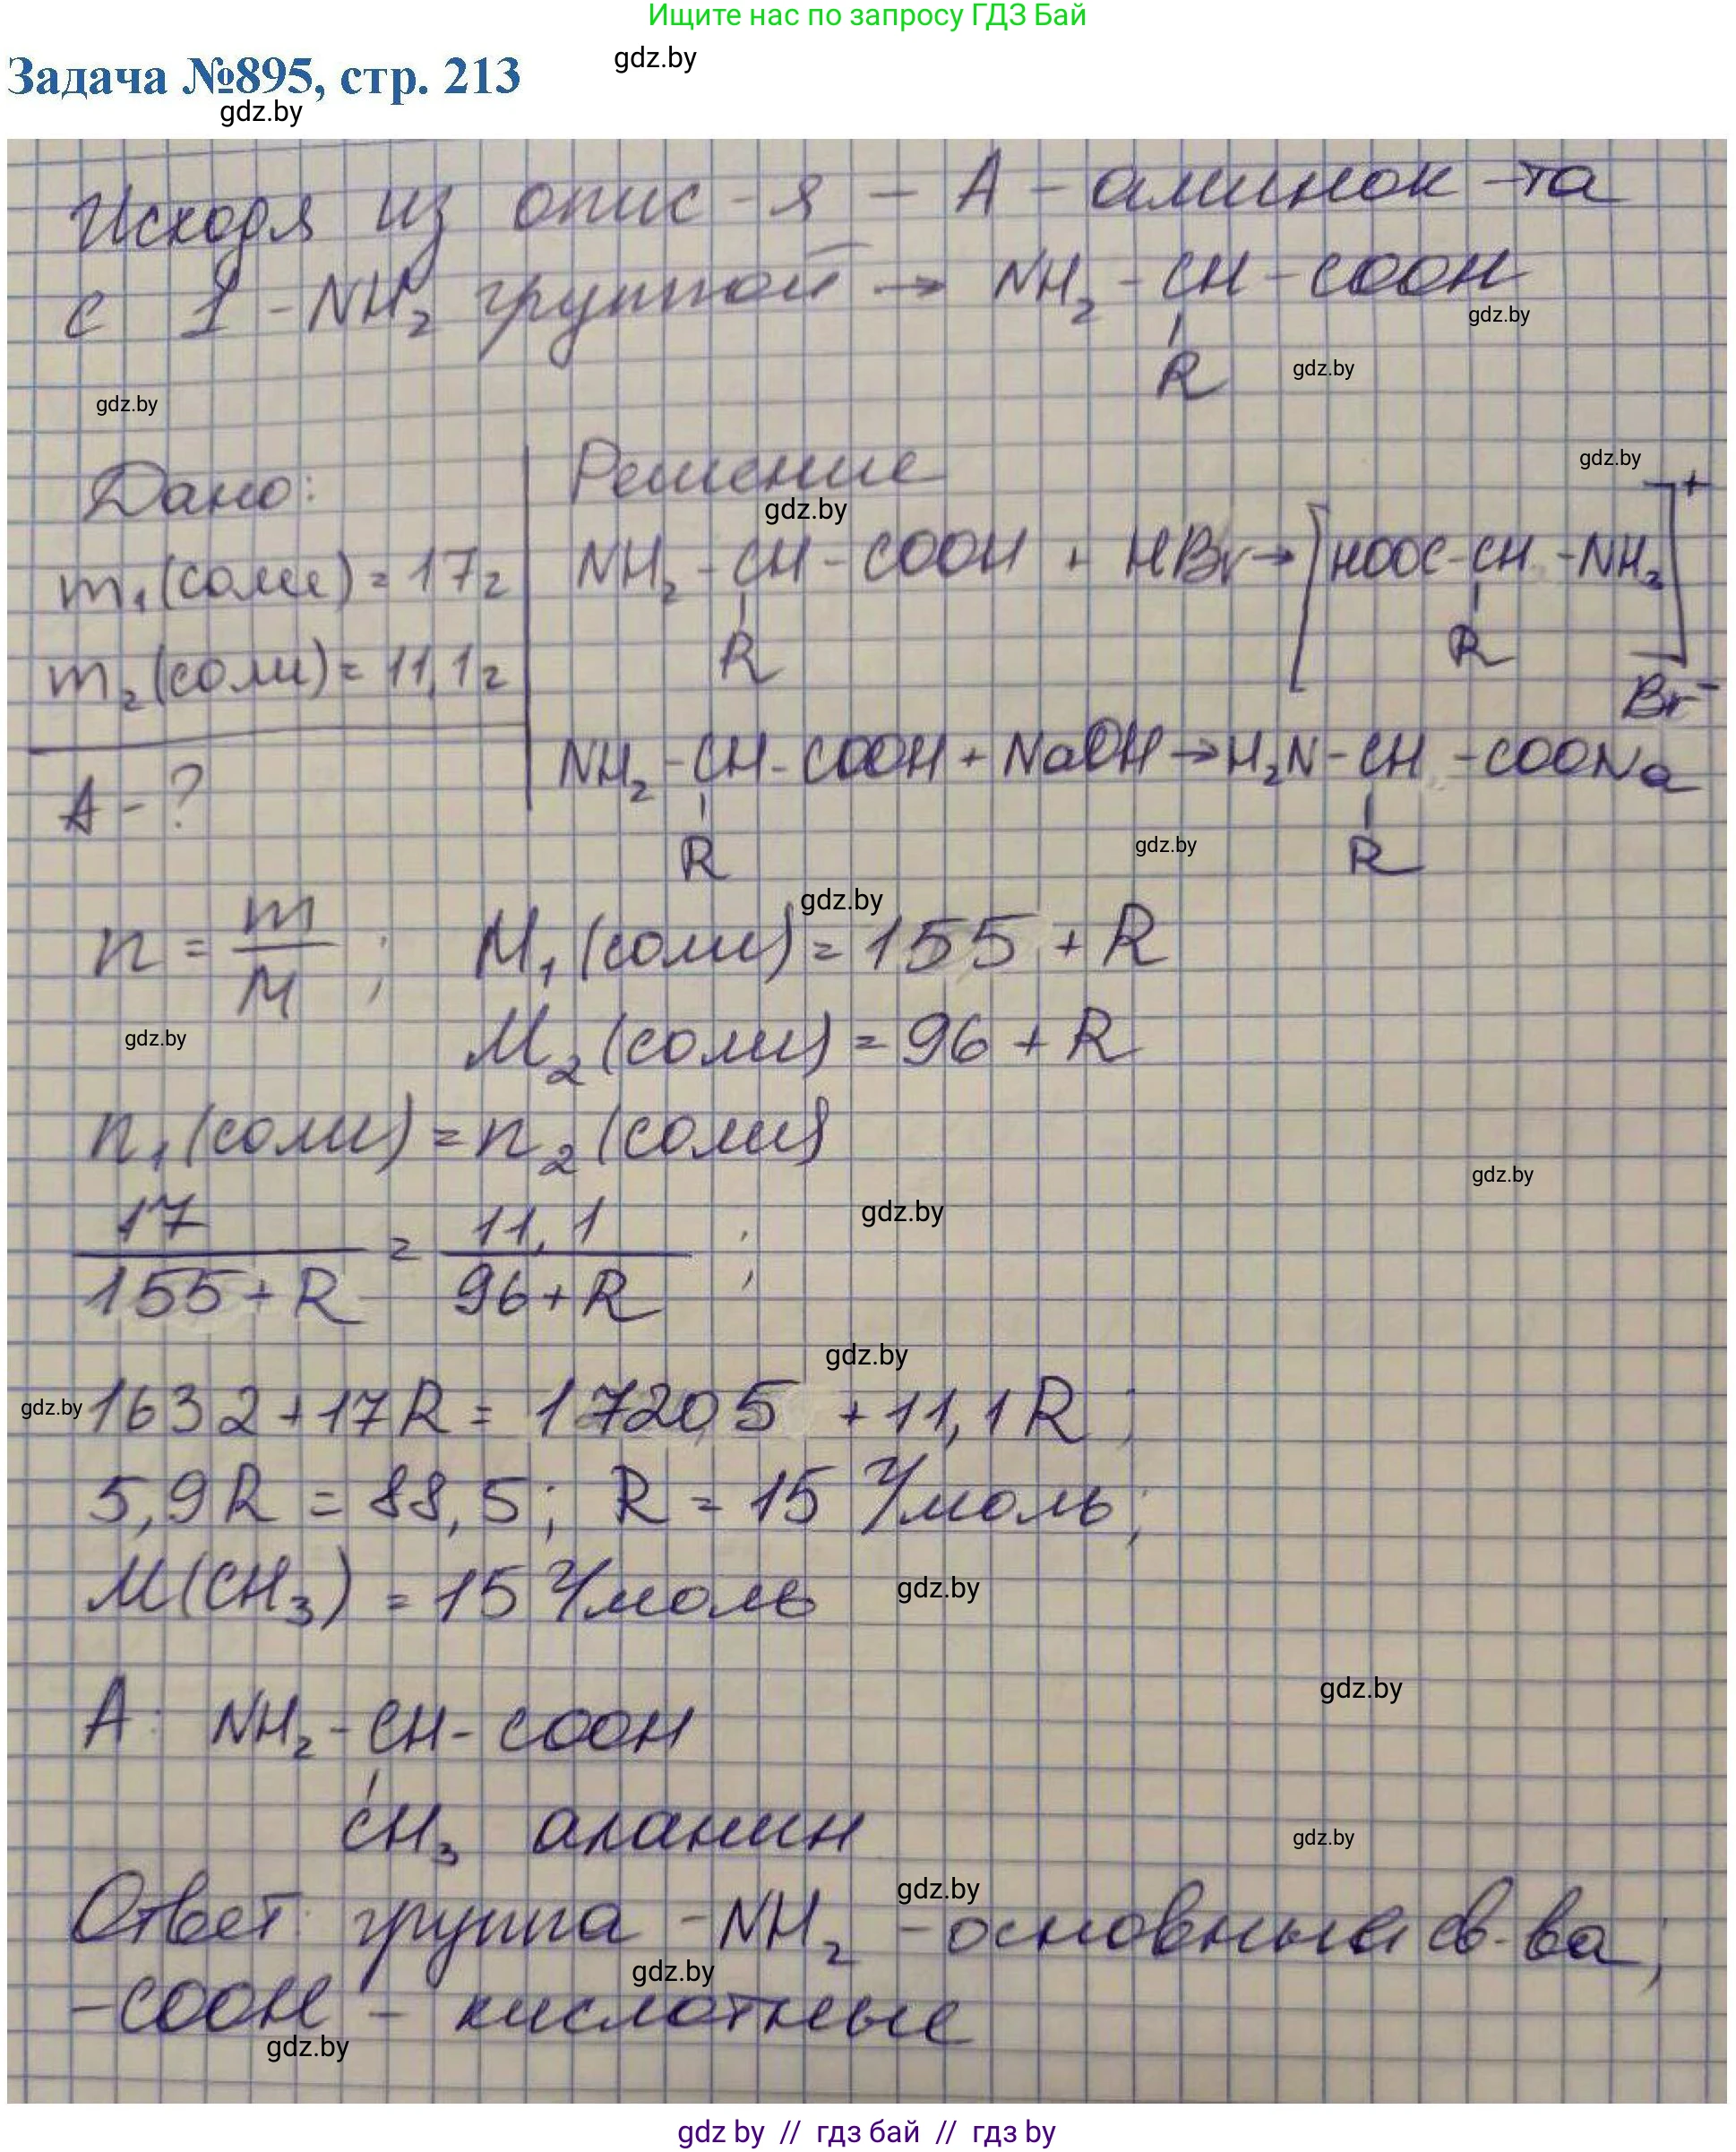 Ищите нас по запросу ГДЗ Бай
gdz.by
Задача №895, стр. 213
gdz.by
Исходя из опис-я – А – аминок-та
с 1 -NH₂ группой → NH₂ - CH - COOH
gdz.by
R
gdz.by
gdz.by
Дано: Решение
gdz.by
gdz.by
m₁(соли) = 17г NH₂ - CH - COOH + HBr → [HOOC - CH - NH₃]⁺
R R
m₂(соли) = 11,1г Br⁻
NH₂ - CH - COOH + NaOH → H₂N - CH - COONa
А - ?
R R
gdz.by
gdz.by
n = m/M ; M₁(соли) = 155 + R
gdz.by
M₂(соли) = 96 + R
n₁(соли) = n₂(соли)
gdz.by
gdz.by
17/155+R = 11,1/96+R ;
gdz.by
gdz.by
1632 + 17R = 1720,5 + 11,1R ;
5,9R = 88,5; R = 15 г/моль;
M(CH₃) = 15 г/моль
gdz.by
gdz.by
А: NH₂ - CH - COOH
CH₃ аланин
gdz.by
gdz.by
Ответ: группа -NH₂ - основные св-ва;
gdz.by
-COOH - кислотные
gdz.by
gdz by // гдз бай // гдз by